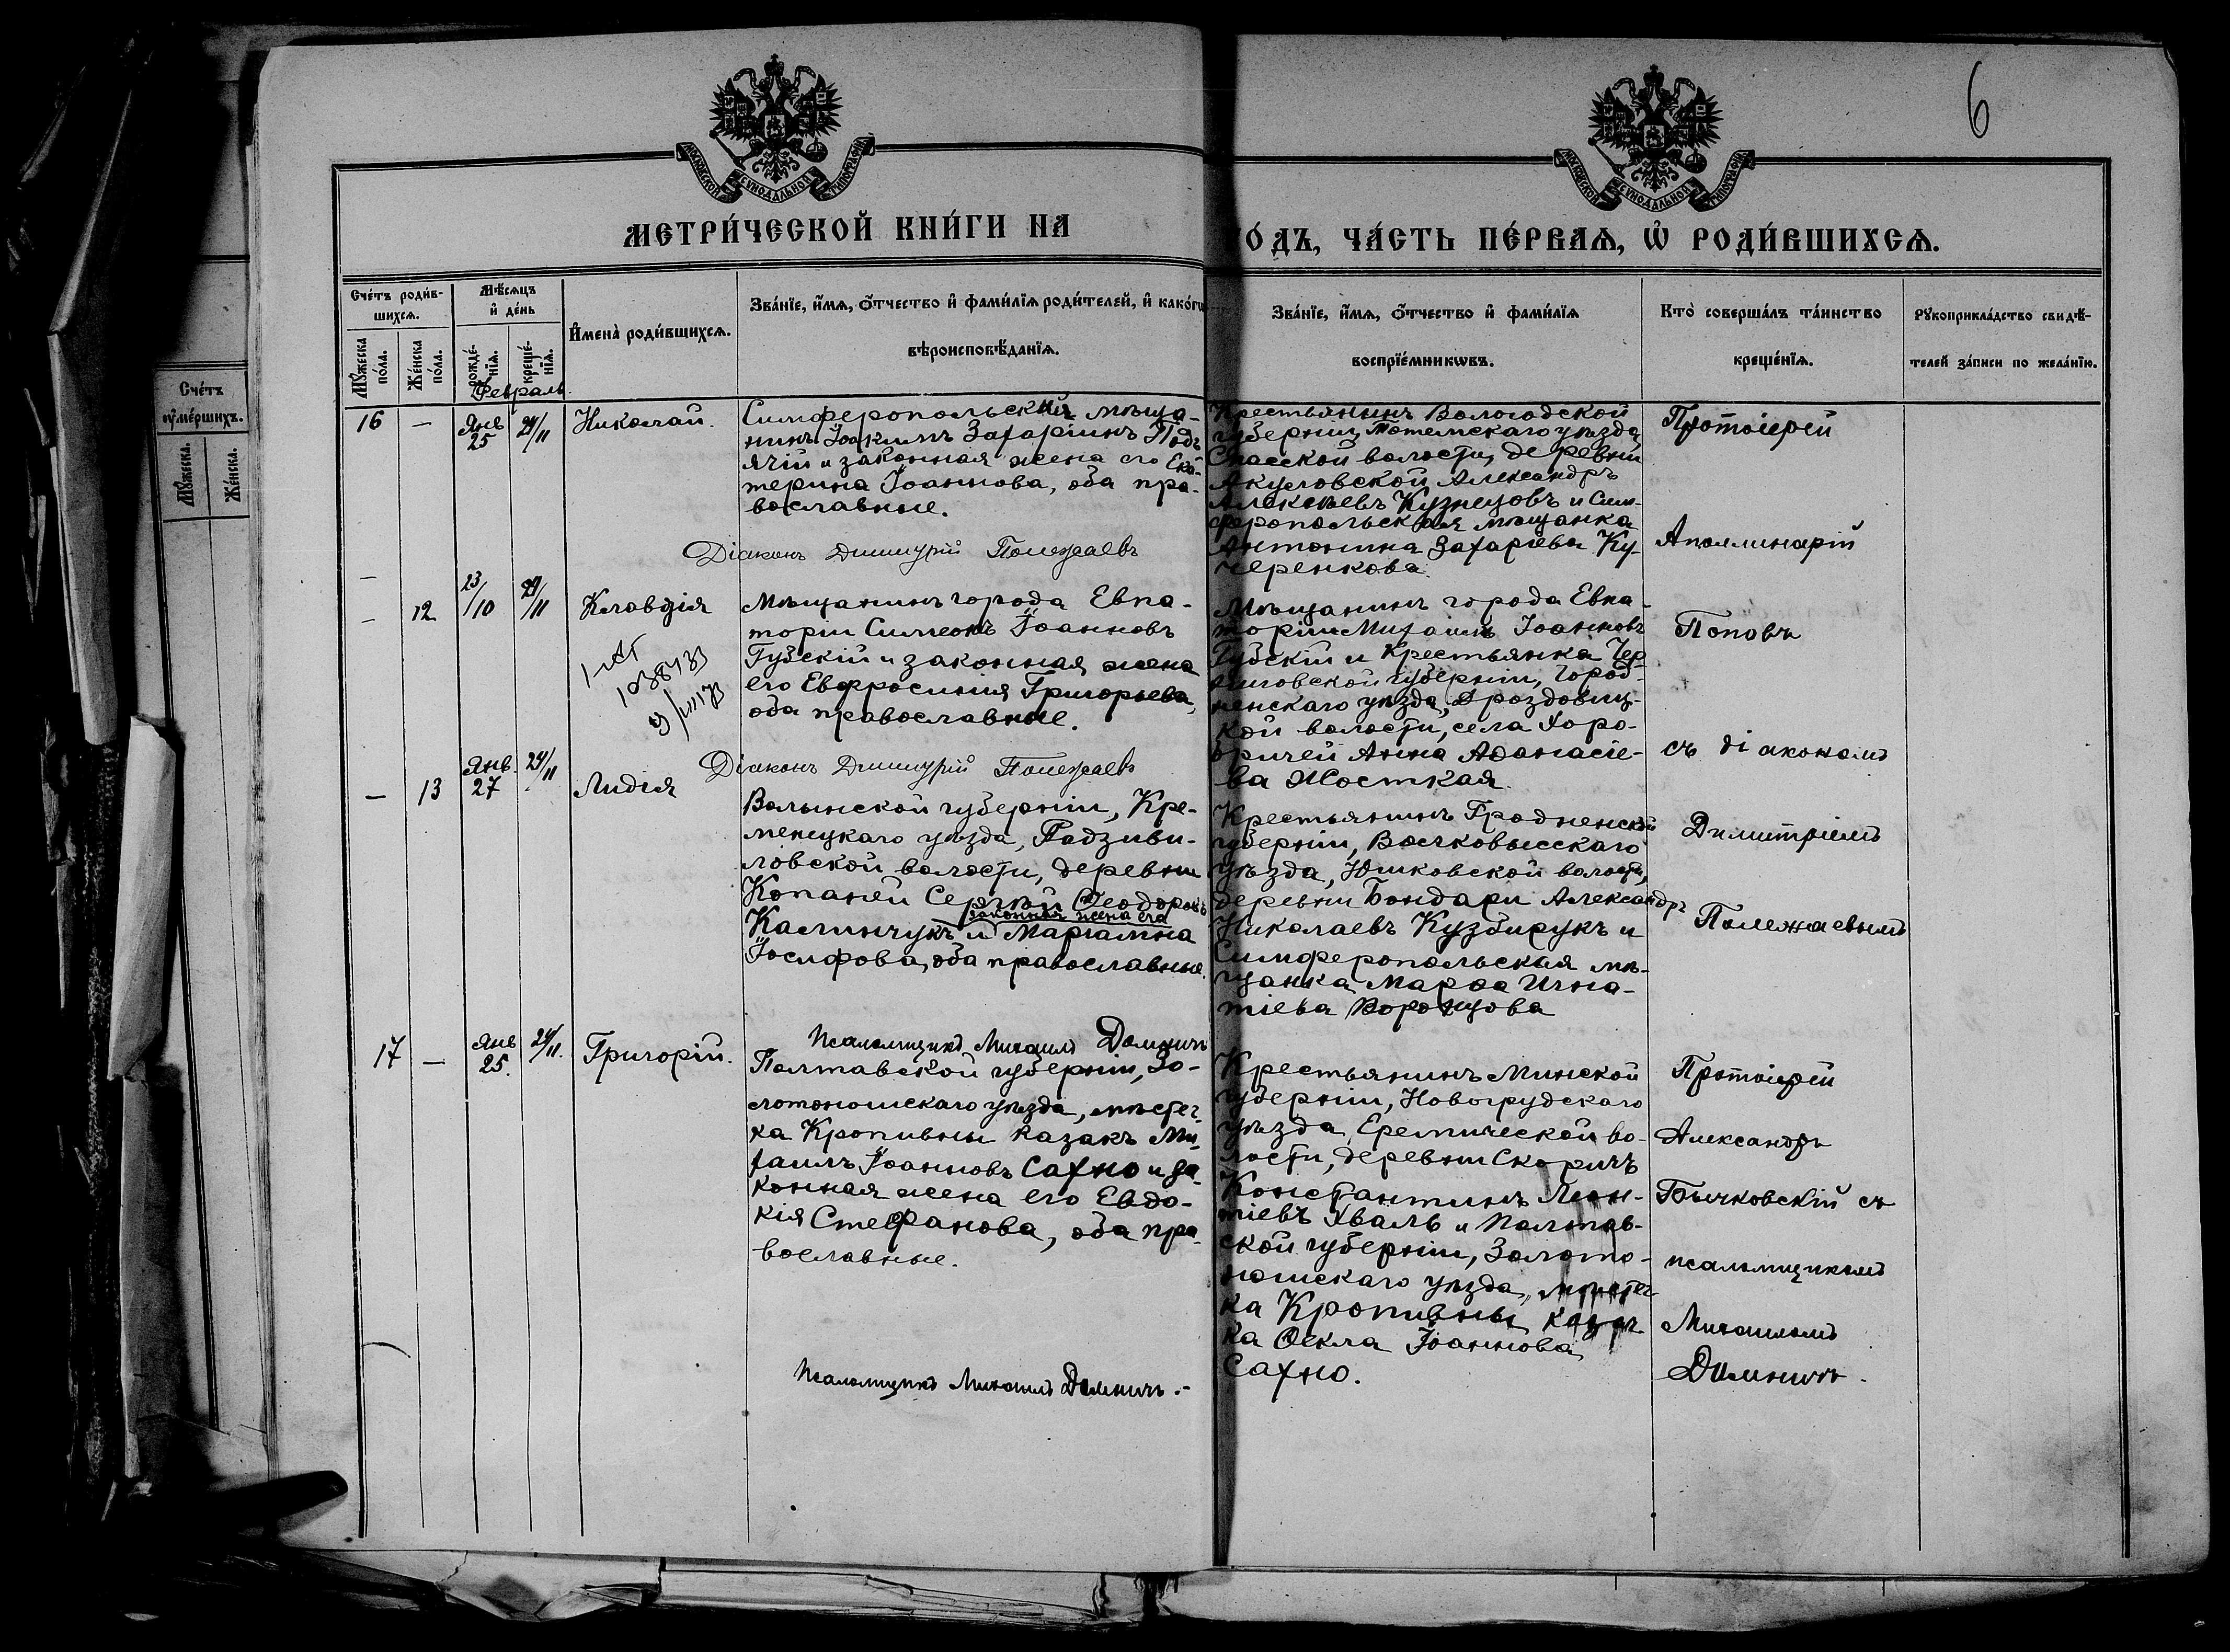 6
МОСКОВСКОЙ СѴНОДАЛЬНОЙ ТИПОГРАФІИ
МОСКОВСКОЙ СѴНОДАЛЬНОЙ ТИПОГРАФІИ
МЕТРИ́ЧЕСКОЙ КНИ́ГИ НА
ГО́ДЪ, ЧА́СТЬ ПЕ́РВАѦ, Ѡ҆ РОДИ́ВШИХСѦ.
Счётъ
ᲂу҆ме́ршихъ.
Мꙋ́жеска.
Же́нска.
Счётъ роди́в-
шихсѧ.
Мꙋ́жеска
по́ла.
Же́нска
по́ла.
Мѣ́сѧцъ
и҆ де́нь
рожде́-
нїѧ.
креще́-
нїѧ.
Февраль.
И҆мена̀ роди́вшихсѧ.
Зва́нїе, и҆́мѧ, ѻ҆́тчество и҆ фами́лїѧ роди́телей, и҆ како́гѡ
вѣроисповѣ́данїѧ.
Зва́нїе, и҆́мѧ, ѻ҆́тчество и҆ фами́лїѧ
воспрїе́мникѡвъ.
Кто̀ соверша́лъ та́инство
креще́нїѧ.
Рꙋкоприкла́дство свидѣ́-
телей за́писи по жела́нїю.
16 — Янв 25 24/II Николай.
Симферопольскій мѣща-
нинъ Іоакимъ Захаріинъ Подъ
ячій и законная жена его Ека-
терина Іоаннова, оба пра-
вославные.
Діаконъ Димитрій Полежаевъ
Крестьянинъ Вологодской
губерніи, Тотемскаго уѣзда
Спасской волости, деревни
Акуловской Александръ
Алексѣевъ Кузнецовъ и Сим-
феропольская мѣщанка
Антонина Захаріева Ку-
черенкова.
Протоіерей
Аполлинарій
Поповъ
съ діакономъ
Димитріемъ
Полежаевымъ
— 12 23/10 24/II Клавдія
Мѣщанинъ города Евпа-
торіи Симеонъ Іоанновъ
Губскій и законная жена
его Евфросинія Григорьева,
оба православные.
Діаконъ Димитрій Полежаевъ
Мѣщанинъ города Евпа-
торіи Михаилъ Іоанновъ
Губскій и крестьянка Чер-
ниговской губерніи, Город-
ненскаго уѣзда, Дроздовиц-
кой волости, села Хоро-
бричей Анна Аѳанасіе-
ва Жосткая.
— 13 Янв. 27 24/II Лидія
Волынской губерніи, Кре-
менецкаго уѣзда, Радзиви-
ловской волости, деревни
Копаней Сергѣй Ѳеодоровъ
законная жена его
Калинчукъ и Маріамна
Іосифова, оба православные.
Псаломщикъ Михаилъ Доминичъ
Крестьянинъ Гродненской
губерніи, Волковысскаго
уѣзда, Юшковской волости,
деревни Бондари Александръ
Николаевъ Кузбирукъ и
Симферопольская мѣ-
щанка Марѳа Игна-
тіева Воронцова
17 — Янв 25. 24/II. Григорій.
Полтавской губерніи, Зо-
лотоношскаго уѣзда, мѣстеч
ка Кропивны казакъ Ми-
хаилъ Іоанновъ Сахно и за-
конная жена его Евдо-
кія Стефанова, оба пра-
вославные.
Псаломщикъ Михаилъ Доминичъ.-
Крестьянинъ Минской
губерніи, Новогрудскаго
уѣзда, Еремической во-
лости, деревни Скоричъ
Константинъ Леон-
тіевъ Хваль и Полтав-
ской губерніи, Золото-
ношскаго уѣзда, мѣстеч
ка Кропивны казач
ка Ѳекла Іоаннова
Сахно.
Протоіерей
Александръ
Бычковскій съ
псаломщикомъ
Михаиломъ
Доминичъ.